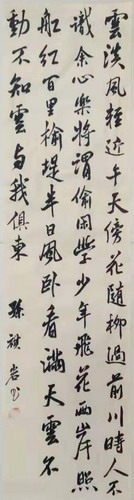 雲淡風輕近午天傍花隨柳過前川時人不
識余心樂將謂偷閑學少年飛花兩岸照
船紅百里榆堤半日風臥看滿天雲不
動不知雲與我俱東
孫祺岩书